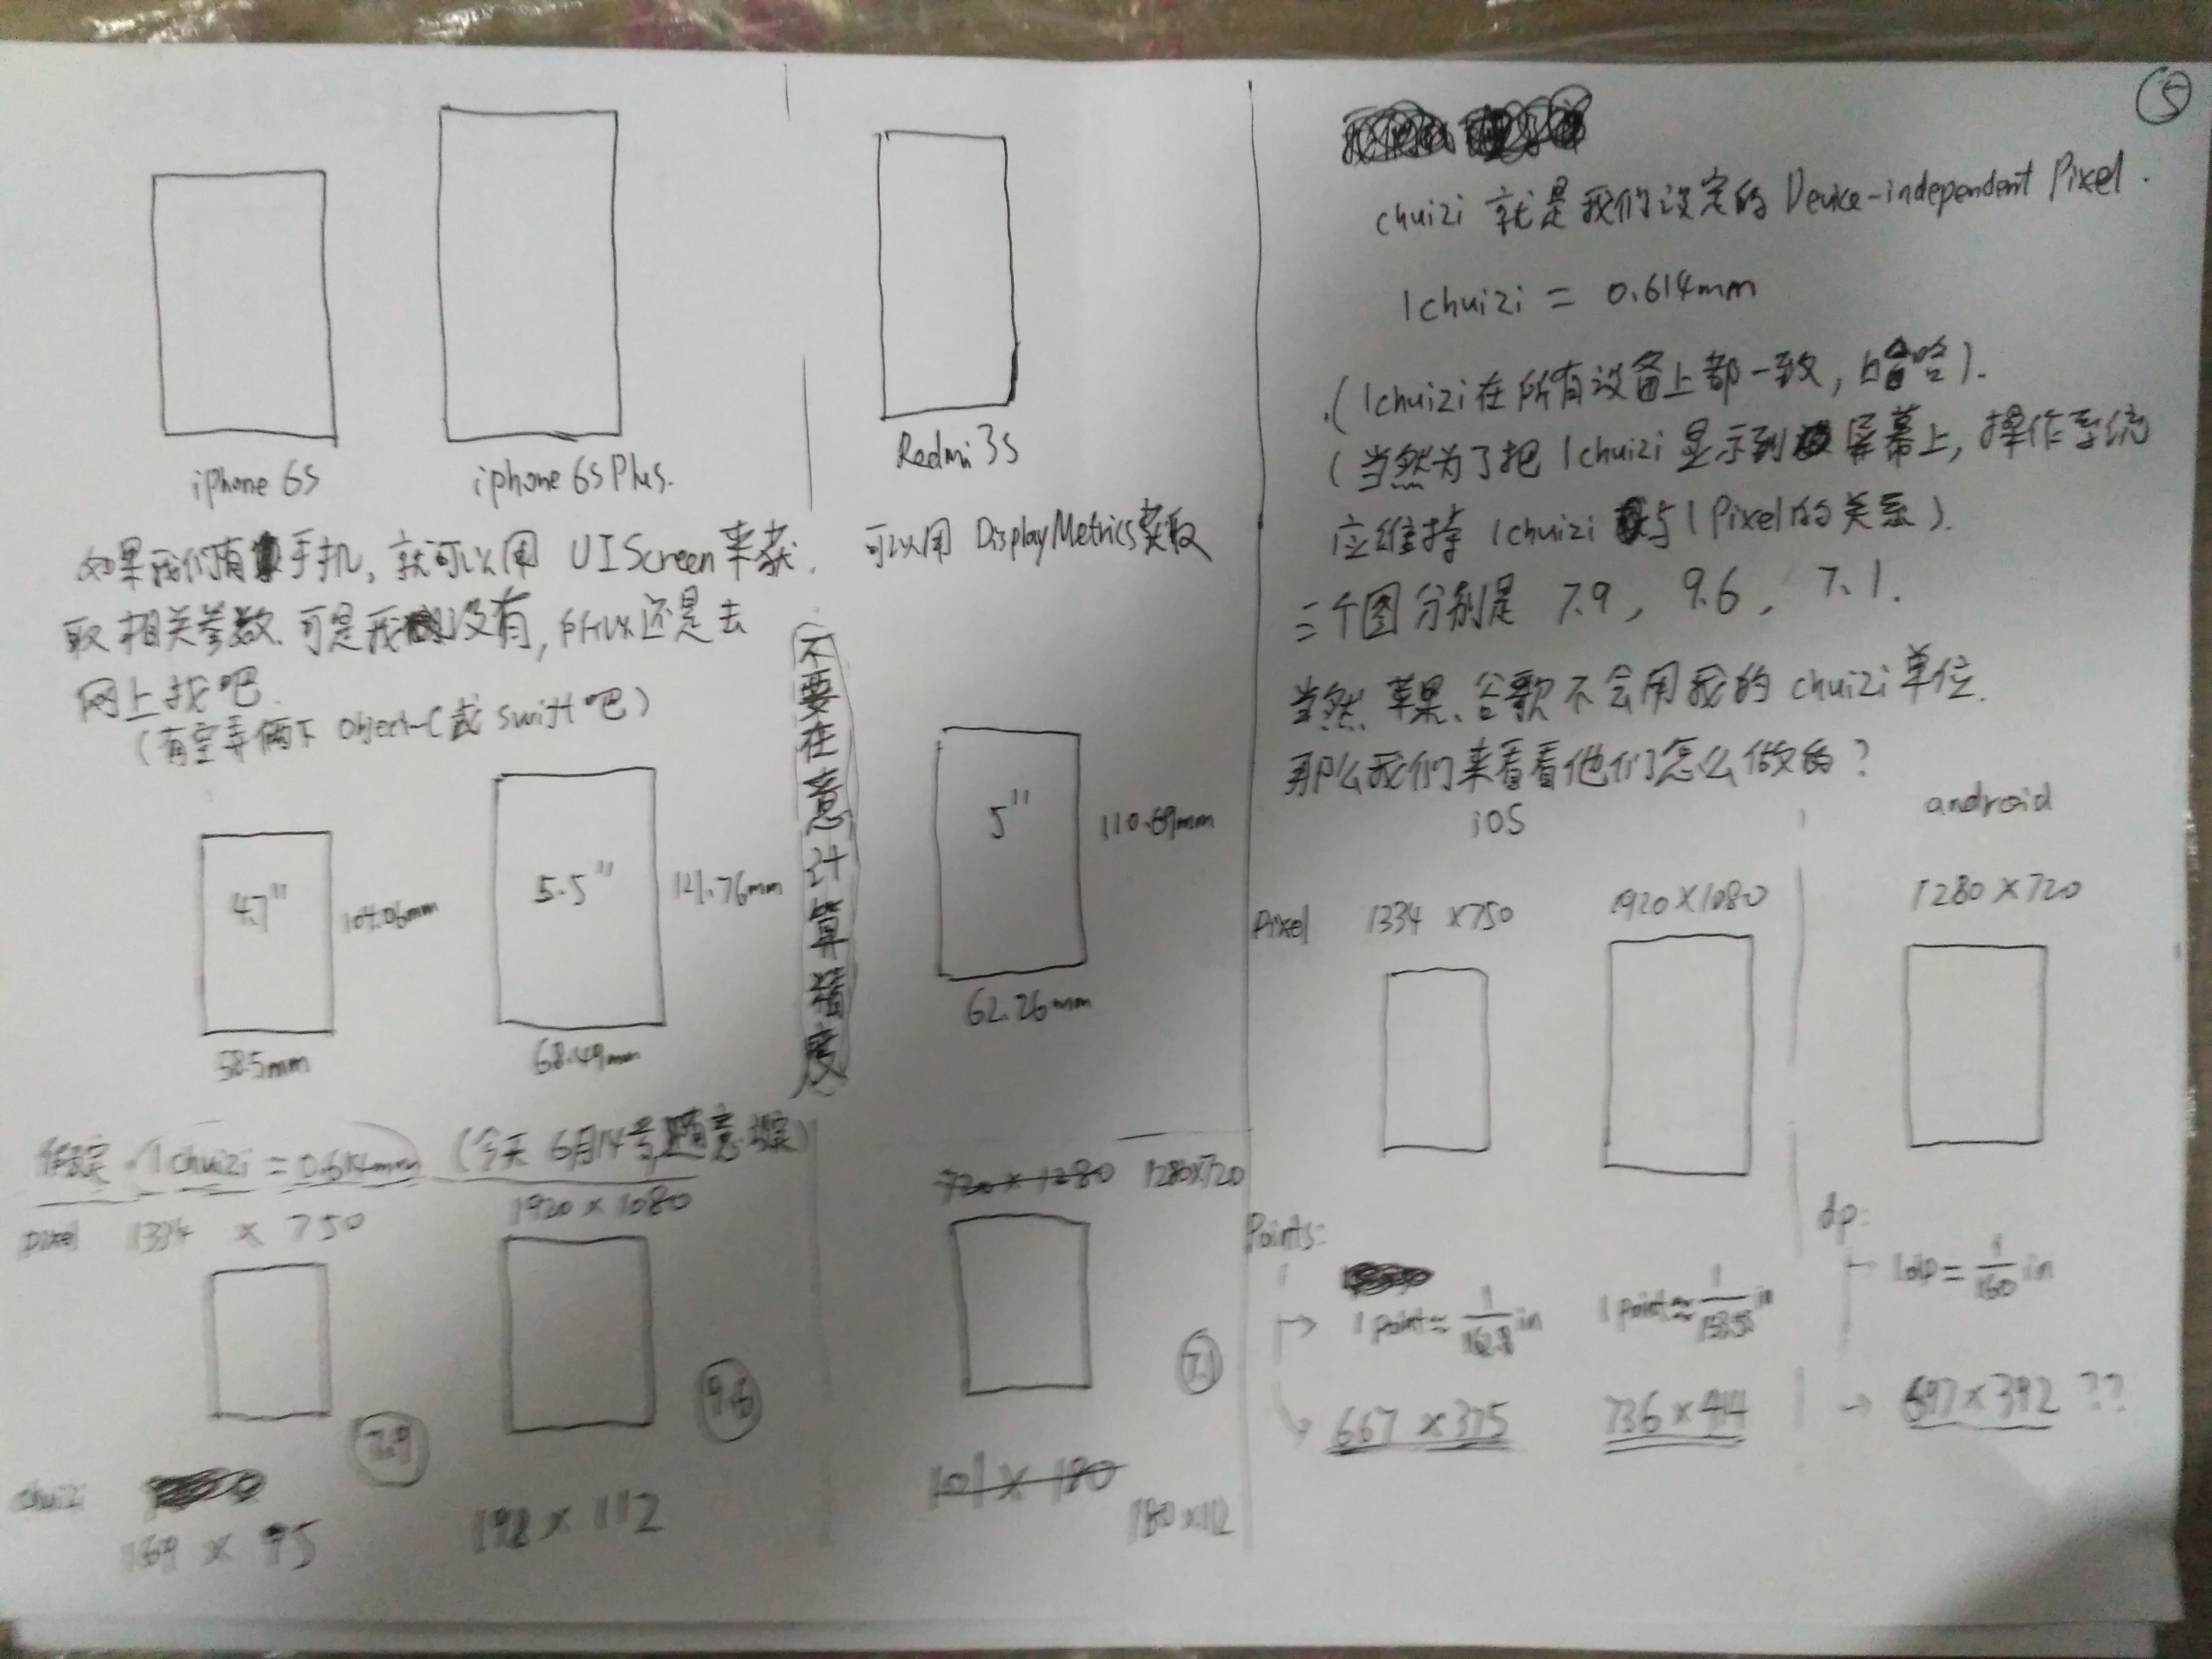 ⑤
iPhone 6s
iphone 6s Plus.
Redmi 3s
如果我们有手机,就可以用 UIScreen来获
取相关参数.可是我没有,所以还是去
网上找吧.
(有空弄俩下 Object-C或 swift吧)
可以用 DisplayMetrics获取
不要在意计算精度
4.7"
104.06mm
58.5mm
5.5"
121.76mm
68.49mm
5"
110.69mm
62.26mm
假定 1chuizi = 0.614mm (今天 6月14号,随意
pixel 1334 x 750
1920 x 1080
720 x 1280 1280x720
7.9
9.6
7.1
chuizi
169 x 95
192 x 112
101 x 180
180 x 112
chuizi 就是我们设定的 Device-independent Pixel.
1chuizi = 0.614mm
(1chuizi在所有设备上都一致,哈哈).
(当然为了把1chuizi显示到屏幕上,操作系统
应维持 1chuizi 与1Pixel的关系).
三个图分别是 7.9, 9.6, 7.1.
当然,苹果、谷歌不会用我的 chuizi单位.
那么我们来看看他们怎么做的?
iOS
android
Pixel 1334 x750
1920 x1080
1280 x720
Points:
1 point≈ 1/162.8 in
1 point≈ 1/153.5 in
dp:
1dp= 1/160 in
667 x 375
736 x 414
697 x 392 ??